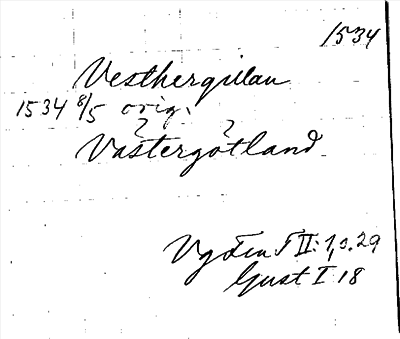 1534
Vesthergillan
1534 8/5 orig.
? ?
Västergötland
Vgötn F II: 1, s. 29
Gust I 18